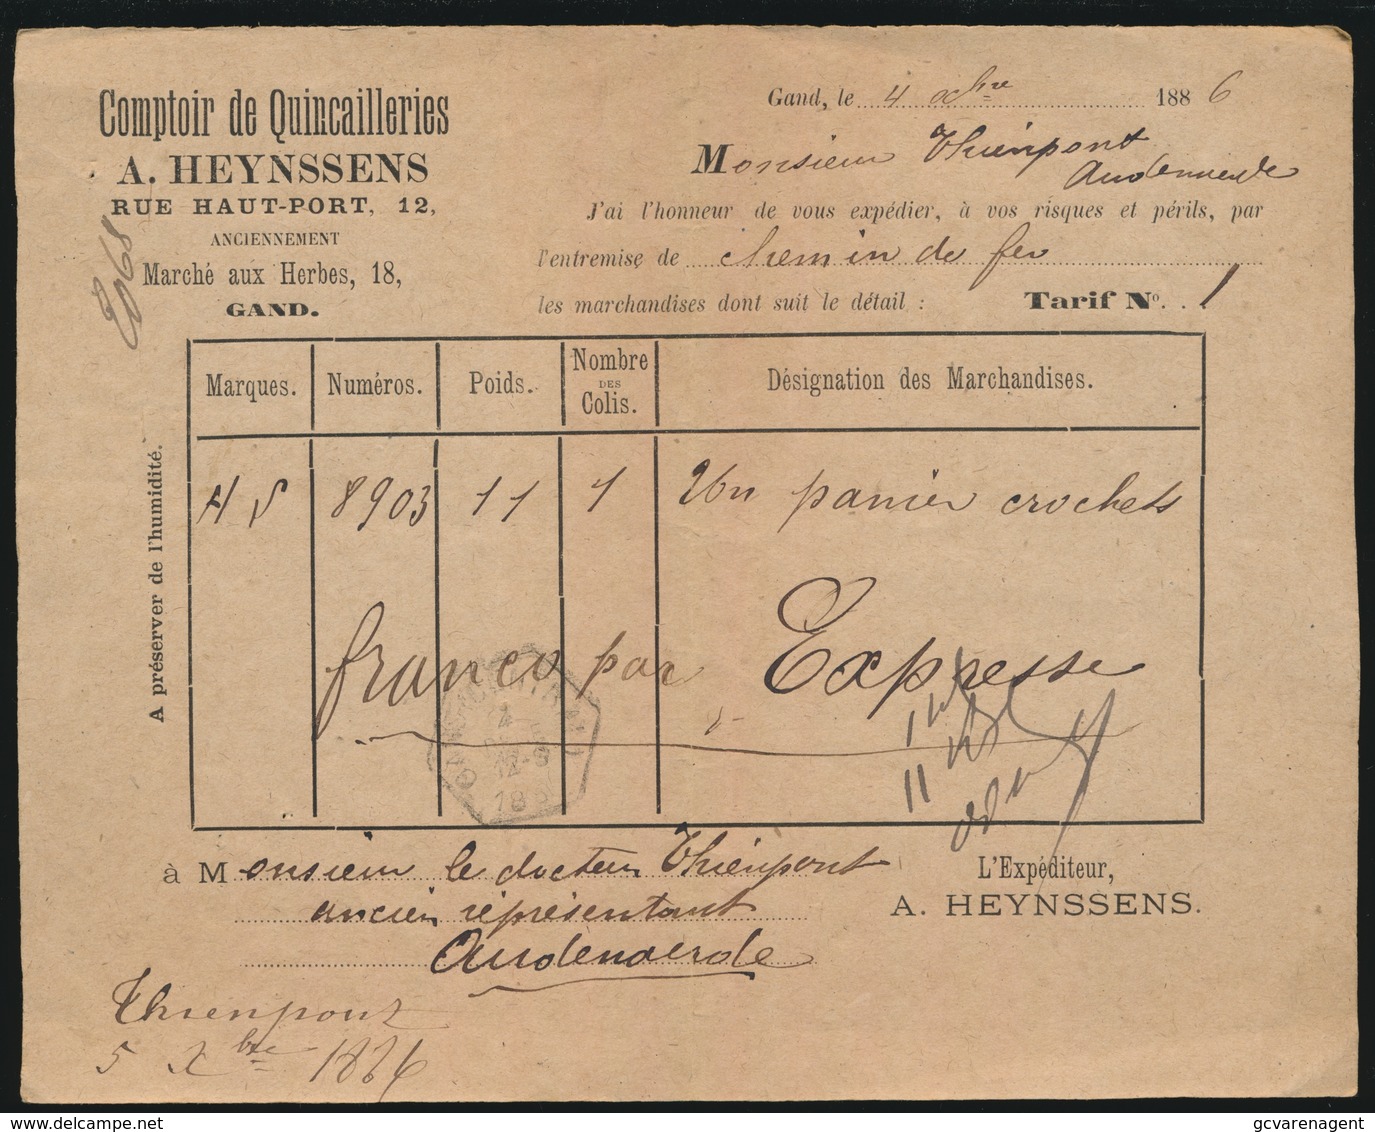 Comptoir de Quincailleries
A. HEYNSSENS
RUE HAUT-PORT, 12,
ANCIENNEMENT
Marché aux Herbes, 18,
GAND.
Gand, le 4 xbre 1886
Monsieur Thienpont
Audenaerde
J'ai l'honneur de vous expédier, à vos risques et périls, par
l'entremise de chemin de fer
les marchandises dont suit le détail : Tarif No. . . 1
A préserver de l'humidité.
Marques. Numéros. Poids. Nombre DES Colis. Désignation des Marchandises.
8903 11 1 Un panier crochets
franco par Expresse
4
12-9
18
à Monsieur le docteur Thienpont
ancien représentant
Audenaerde
L'Expéditeur,
A. HEYNSSENS.
Thienpont
5 Xbre 1886
gcvarenagent
delcampe.net